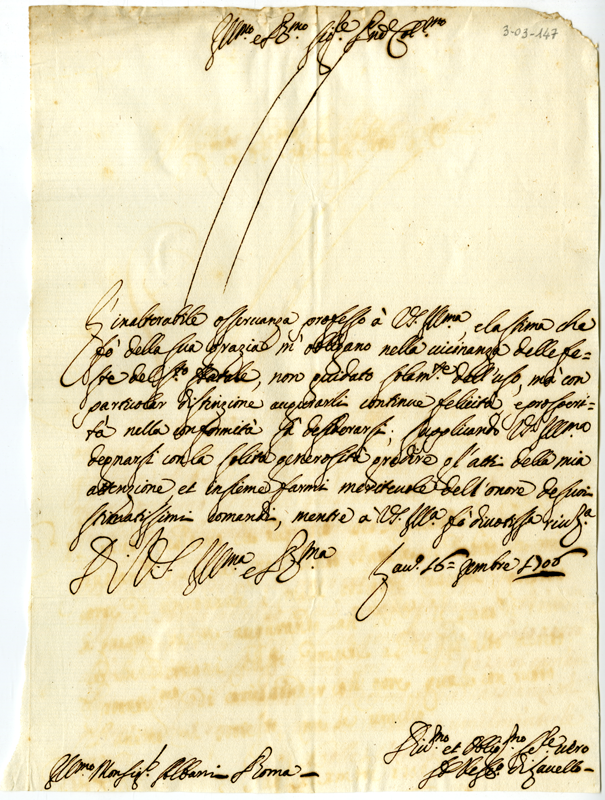 Ill.mo e R.mo Sig.re Pnõ Col.mo
3-03-147
L'inalterabile osservanza professo à V.S. Ill.ma, e la stima che
fò della sua grazia m'obligano nella vicinanza delle fe-
ste del S.to Natale, non guidato solam.te dell'uso, mà con
particolar distinzione augurarli continue felicità, e prosperi-
tà nella conformità sà desiderarsi; supplicando V.S. Ill.ma
degnarsi con la solita generosità gredire gl'atti della mia
attenzione et insieme farmi meritevole dell'onore de suoi
stimatissimi comandi, mentre à V.S. Ill.ma fò divotissa riv.za
Di V.S. Ill.ma e R.ma
16 = Xmbre 1706
Div.mo et Oblig.mo Se.re vero
Ill.mo Monsig.r Albani Roma
di Lavello